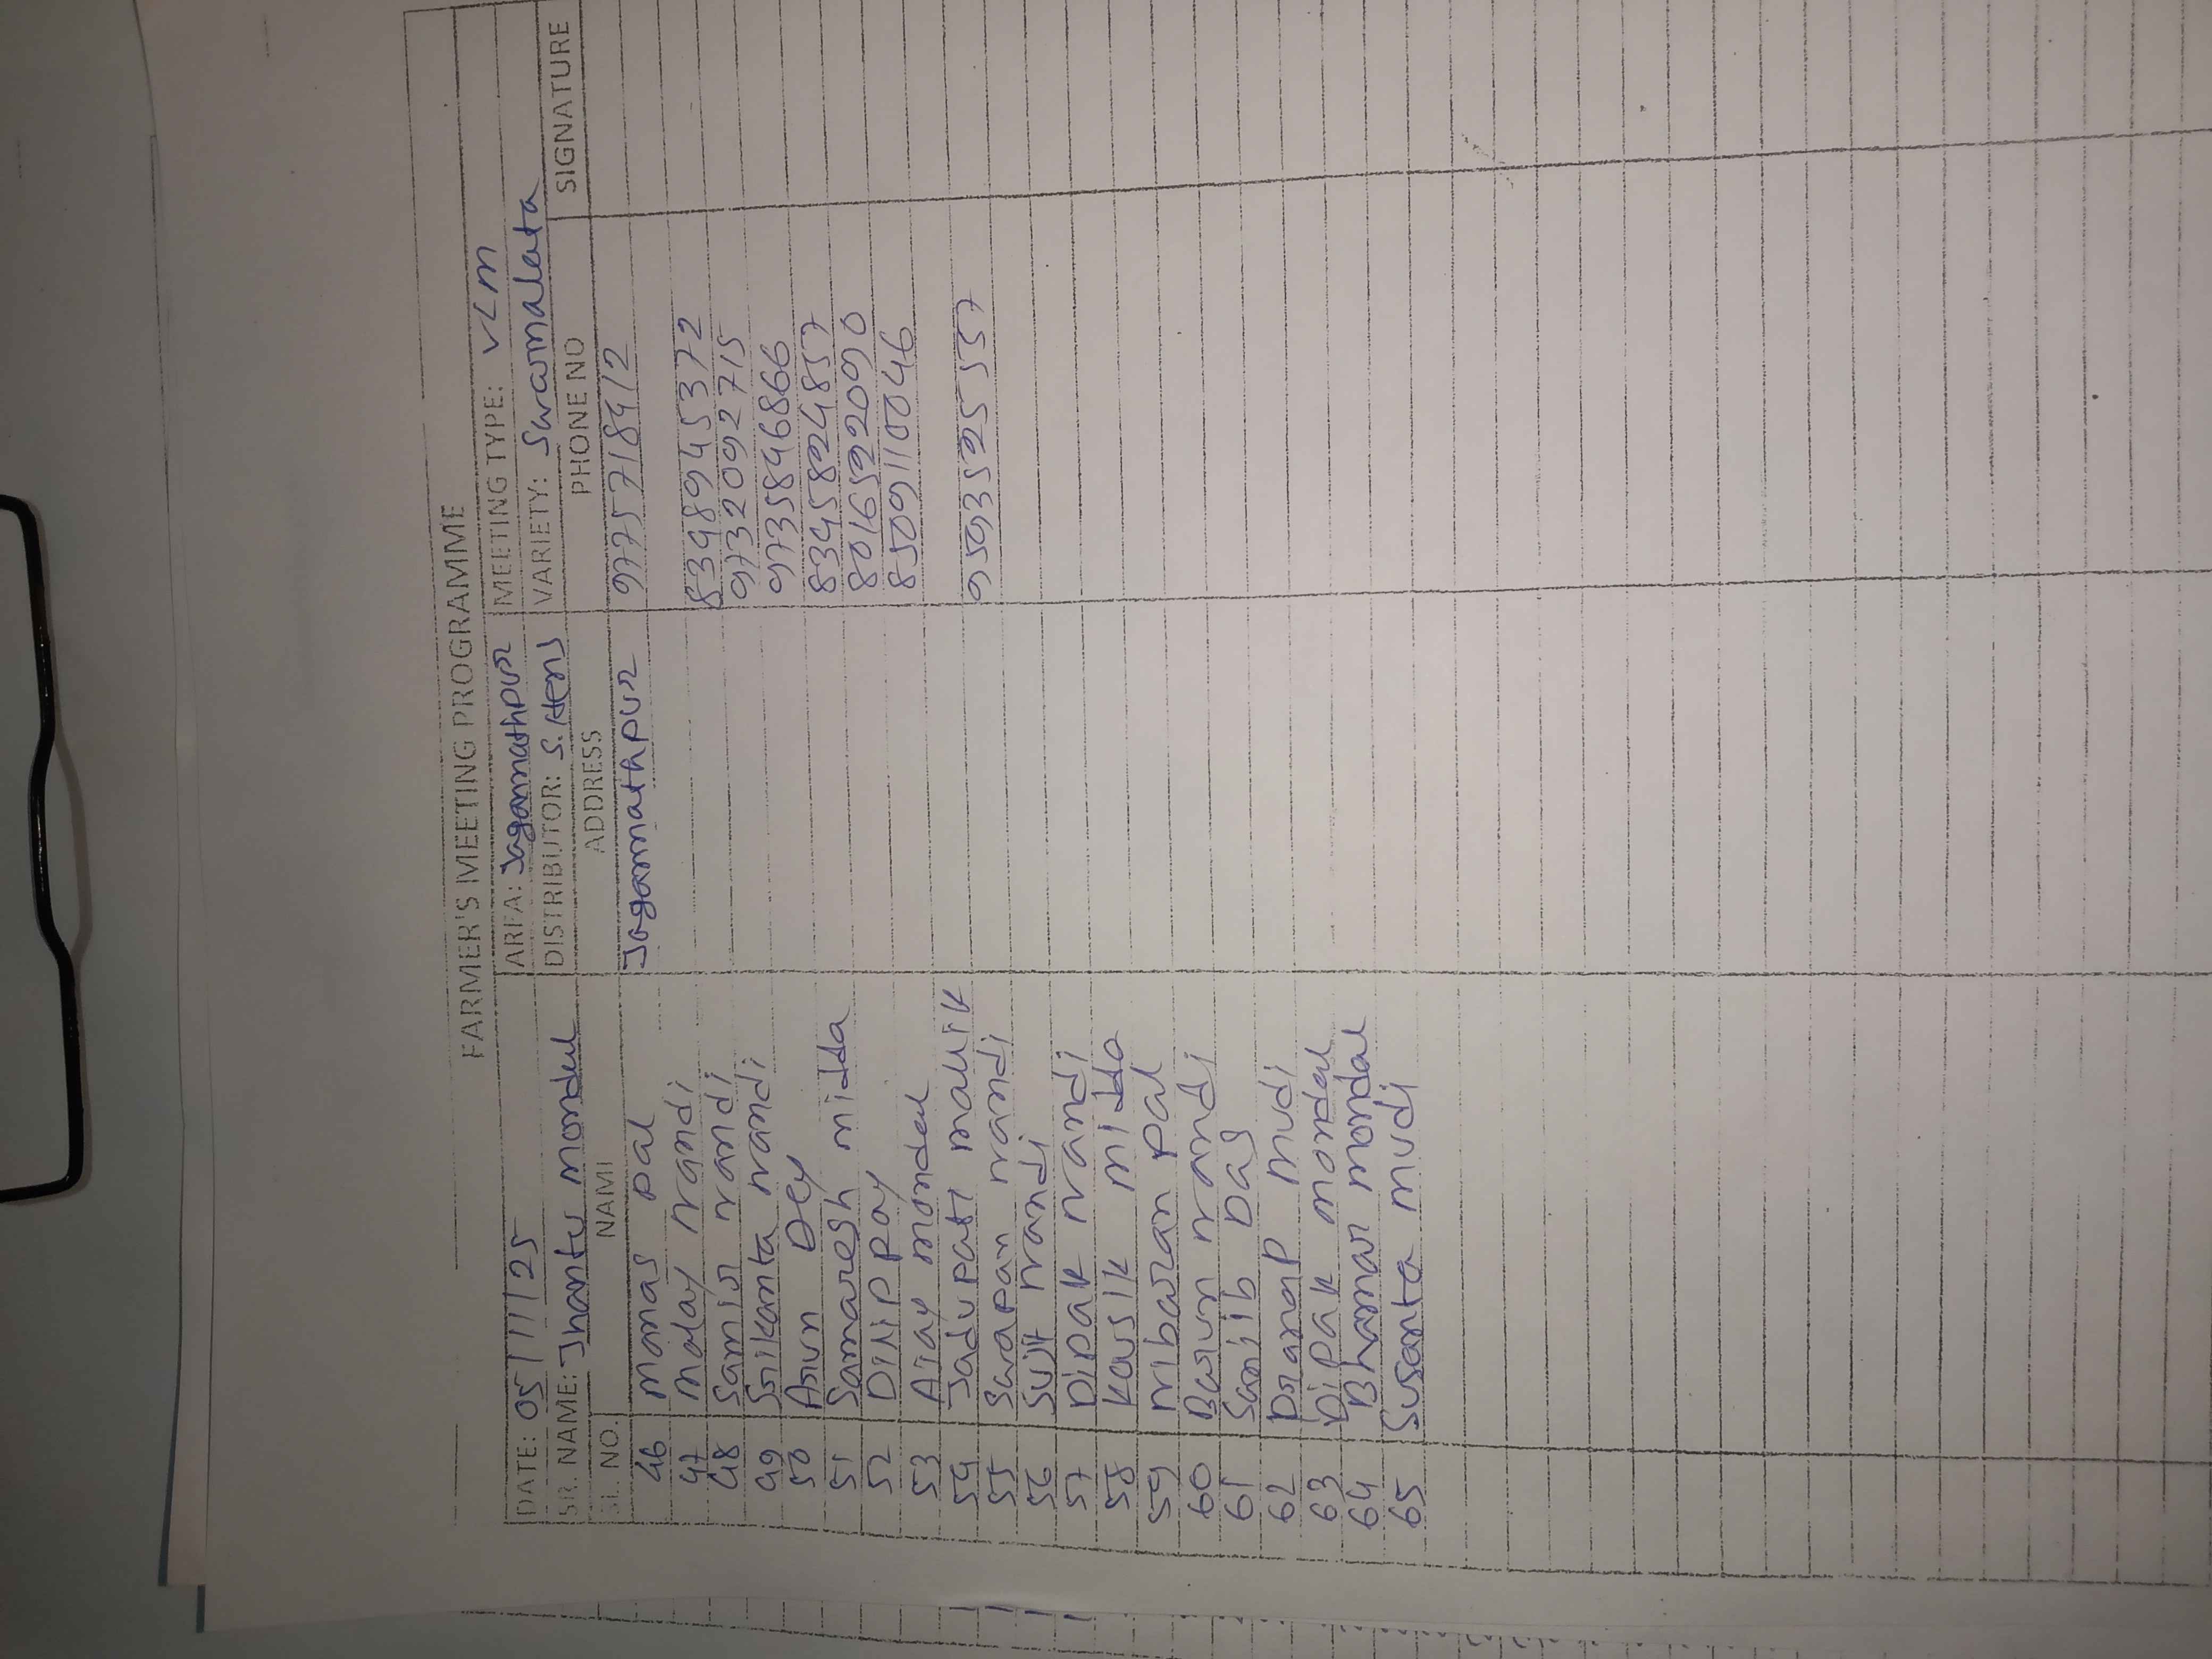 FARMER'S MEETING PROGRAMME
DATE: 05/11/25 AREA: Jagannathpur MEETING TYPE: VCM
SR. NAME: Jhantu mondal DISTRIBUTOR: S. Hens VARIETY: Swarnalata
SL. NO. NAME ADDRESS PHONE NO SIGNATURE
46 Manas pal Jagannathpur 9775718412
47 Malay Nandi
48 Samir nandi 8348945372
49 Srikanta nandi 9732092715
50 Arun Dey 9735846866
51 Samaresh midda 8345824857
52 Dilip pay 8016522090
53 Ajay mondal 8509110046
54 Jadupati mallik
55 Swapan nandi 9593525557
56 Sujit nandi
57 Dipak nandi
58 Kousik midda
59 nibaran pal
60 Barun nandi
61 Sanjib Das
62 Pranap mudi
63 Dipak mondal
64 Bhanar mondal
65 Susanta mudi